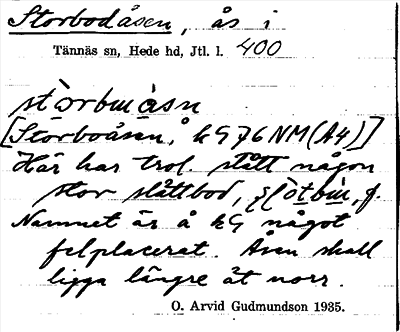 Storbodåsen, ås i
Tännäs sn, Hede hd, Jtl. l. 400
stòrbuàsn
[Storboåsen, kG 76 NM (A4)]
Här har trol. stått någon
stor slåttbod,
Namnet är å kG något
felplacerat. Åsen skall
ligga längre åt norr.
O. Arvid Gudmundson 1935.